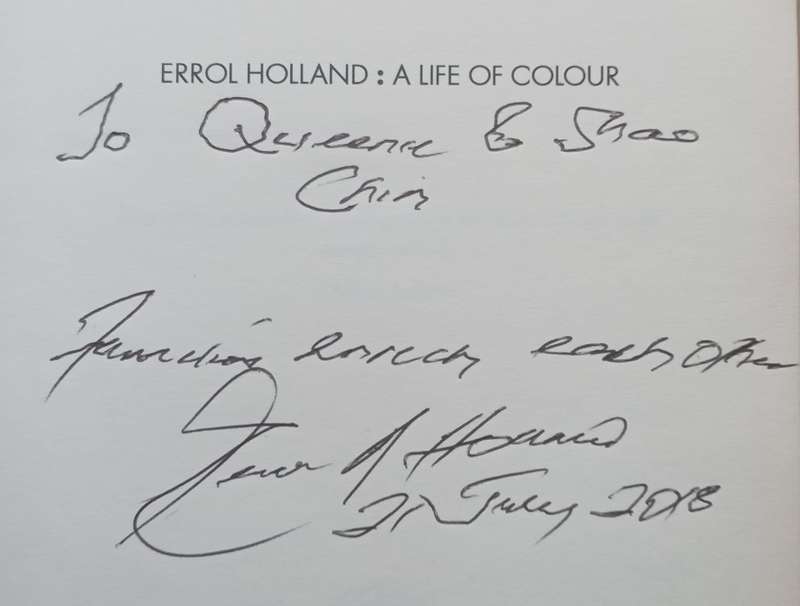 ERROL HOLLAND : A LIFE OF COLOUR
To Queenie & Shao
Chin
enrich each other
Holland
21 July 2018